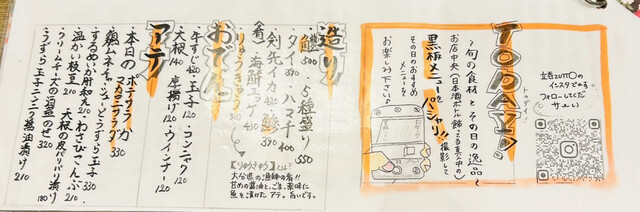 TODAY!
トゥデイ
〜旬の食材とその日の逸品〜
お店中央(日本酒ボトル飾ってる真ん中の)
黒板メニューをパシャリ!!撮影して
その日のおすすめ
メニューを
お楽しみ下さい♪
立呑ZUTTOの
インスタです。
フォローしてくだ
サぁい
造り
5種盛り 550
タイ 500
ハマチ 400
剣先イカ 420
鯵 390
海鮮ユッケ
りゅうきゅう 390
【りゅうきゅう】とは?
大分県の漁師の肴!!
甘めの醤油と、ごま、薬味に
魚を漬けたアテ。旨いです。
おでん
牛すじ 120
玉子 120
コンニャク 120
大根 140
厚揚げ 120
ウインナー 120
アテ
本日のポテサラ
マカロニサラダ
鶏ムネチャーシューとうずら玉子 320
するめいか肝和え 210
わさびこんぶ
温かい枝豆 210
大根の皮パリパリ漬け 180
クリームチーズの酒盗のせ 320
うずら玉子ニンニク醤油漬け 210